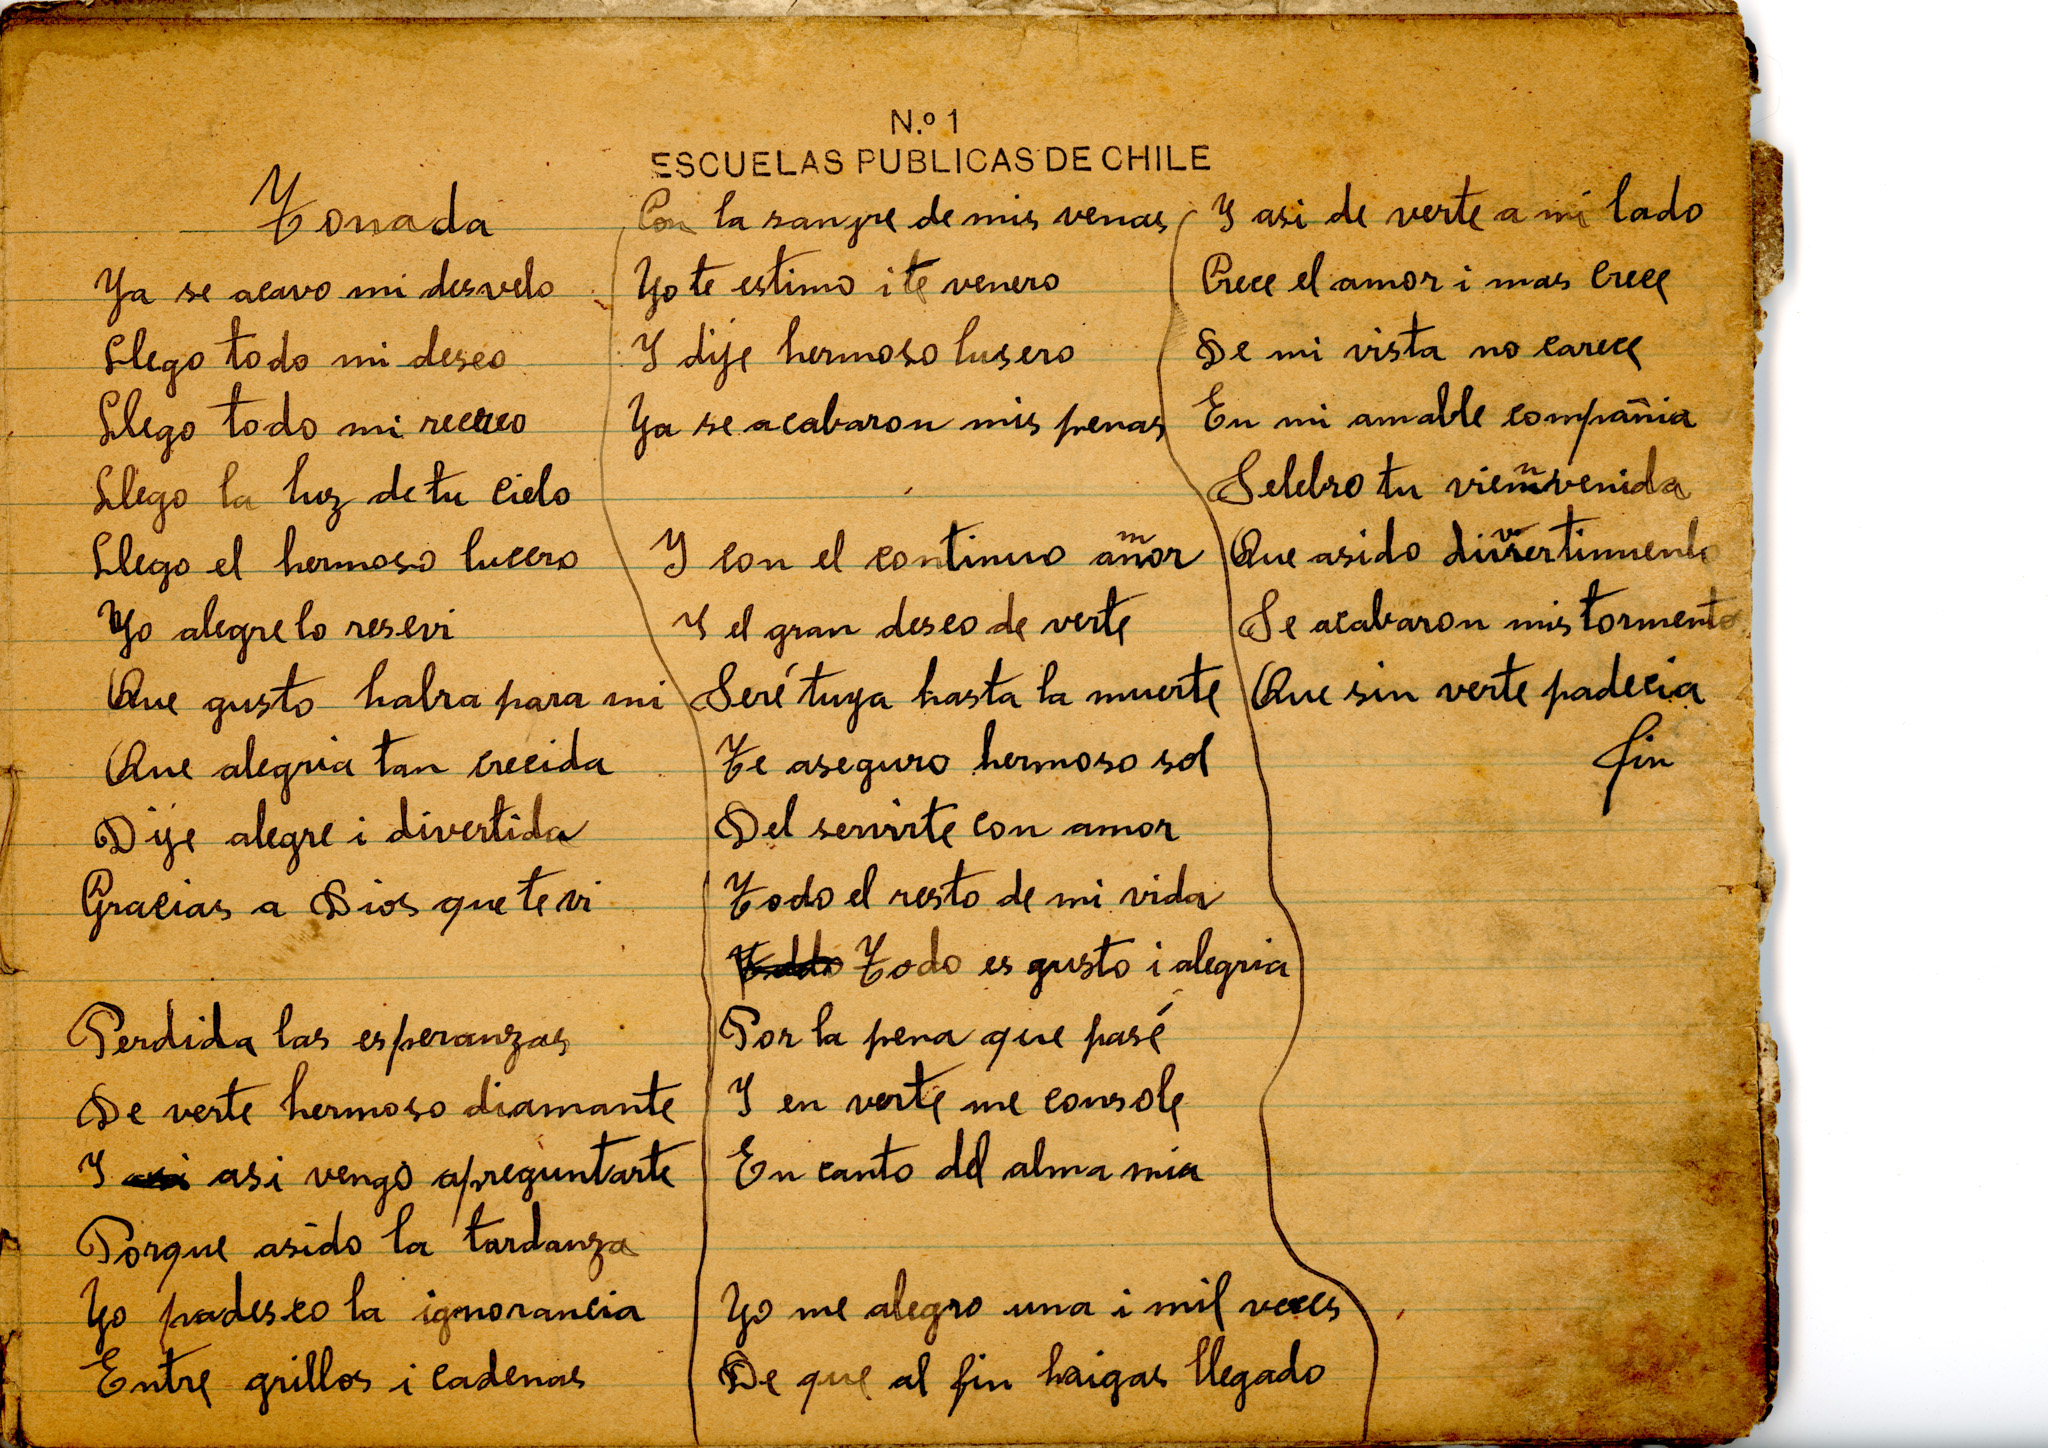 N.º 1
ESCUELAS PUBLICAS DE CHILE
Tonada
Ya se acavo mi desvelo
Llego todo mi deseo
Llego todo mi recreo
Llego la luz de tu cielo
Llego el hermoso lucero
Yo alegre lo resevi
Que gusto habra para mi
Que alegria tan crecida
Dije alegre i divertida
Gracias a Dios que te vi
Perdida las esperanzas
De verte hermoso diamante
I asi vengo apreguntarte
Porque asido la tardanza
Yo padesco la ignorancia
Entre grillos i cadenas
Con la sangre de mis venas
Yo te estimo i te venero
I dije hermoso lusero
Ya se acabaron mis penas
I con el continuo amor
I el gran deseo de verte
Seré tuya hasta la muerte
Te aseguro hermoso sol
Del servirte con amor
Todo el resto de mi vida
Todo es gusto i alegria
Por la pena que pasé
I en verte me console
En canto del alma mia
Yo me alegro una i mil veces
De que al fin haigas llegado
I asi de verte a mi lado
Crece el amor i mas crece
De mi vista no carece
En mi amable compañia
Selebro tu vienvenida
Que asido divertimento
Se acabaron mis tormento
Que sin verte padecia
fin